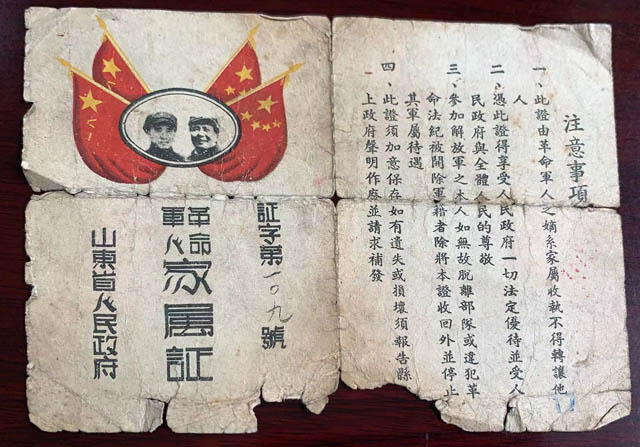 注意事項
一、此證由革命軍人之嫡系家屬收執不得轉讓他
人
二、憑此證得享受人民政府一切法定優待並受人
民政府與全體人民的尊敬
三、參加解放軍之本人如無故脫離部隊或違犯革
命法紀被開除軍籍者除將本證收回外並停止
其軍屬待遇
四、此證須加意保存如有遺失或損壞須報告縣
上政府聲明作廢並請求補發
証字第一〇九號
革命
軍人
家属証
山東省人民政府